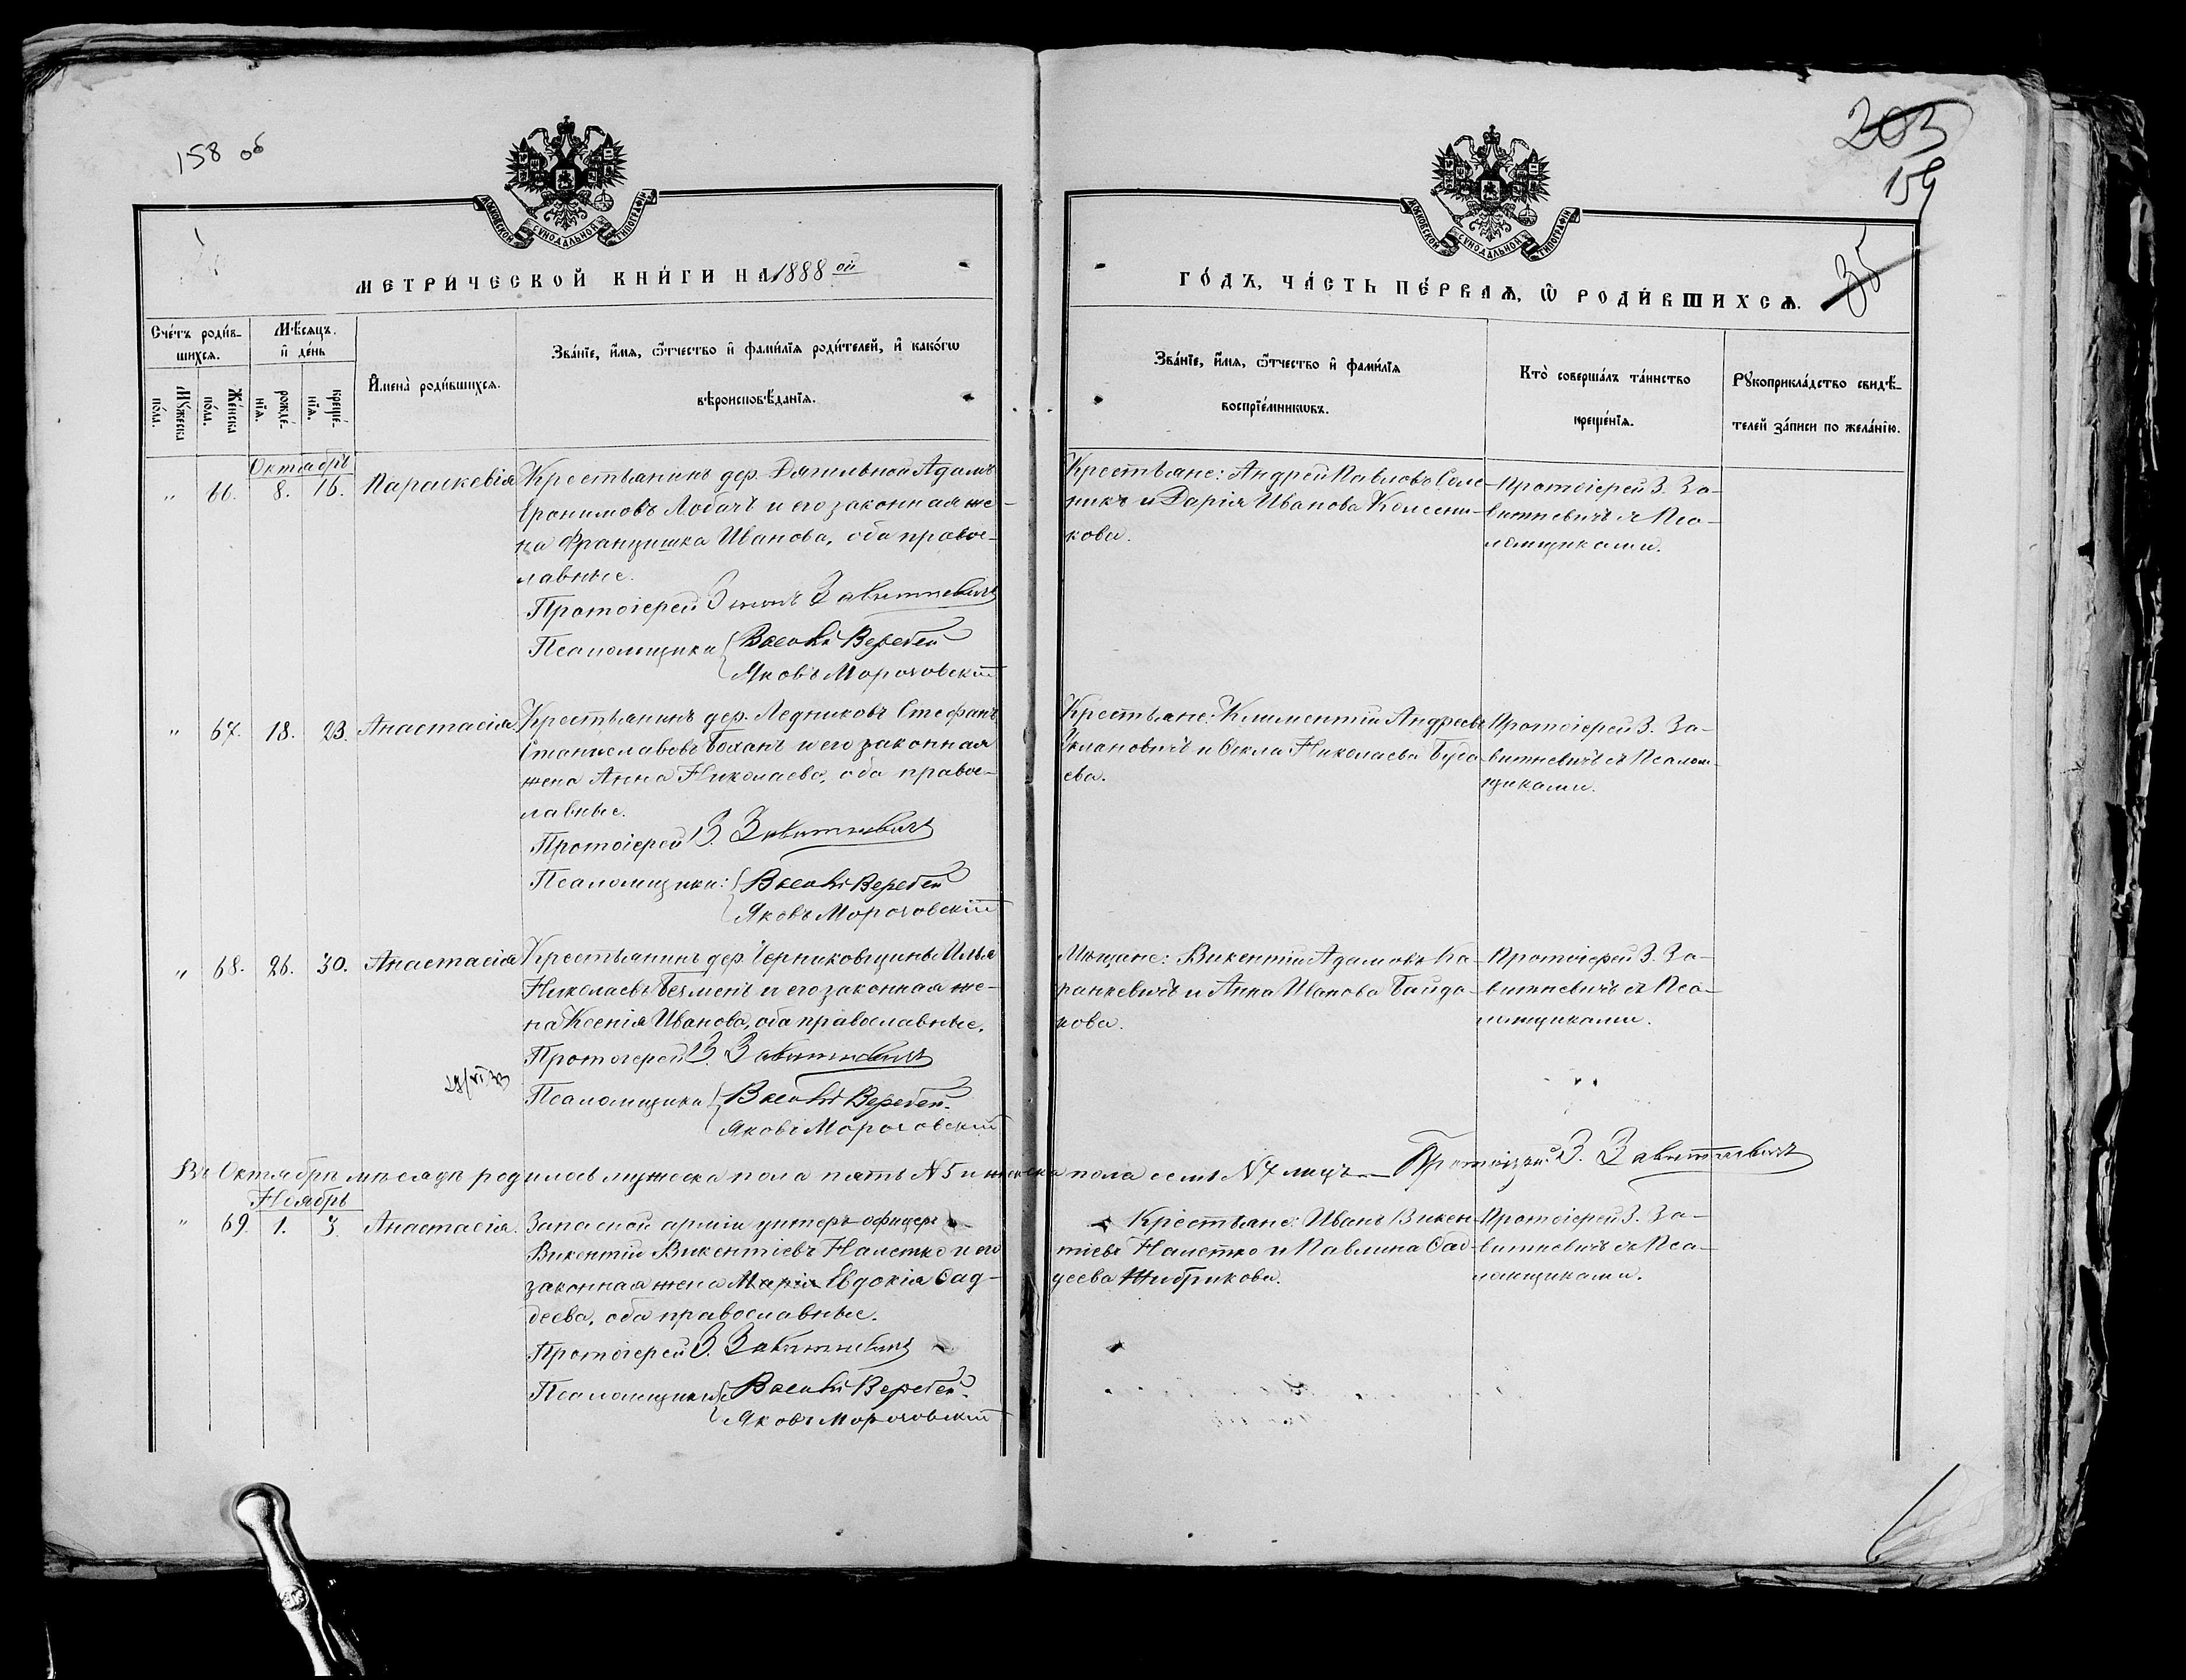 158 об
203
159
35
МОСКОВСКОЙ СУНОДАЛЬНОЙ ТИПОГРАФІИ
МОСКОВСКОЙ СУНОДАЛЬНОЙ ТИПОГРАФІИ
МЕТРИ́ЧЕСКОЙ КНИ́ГИ НА 1888 ой
ГО́ДЪ, ЧА́СТЬ ПЕ́РВАѦ, Ѡ҆ РОДИ́ВШИХСѦ.
Сче́тъ роди́в-
шихсѧ.
Мѣ́сѧцъ.
и҆ де́нь
Мꙋ́жеска
по́ла.
Же́нска
по́ла.
рожде́-
нїѧ.
креще́-
нїѧ.
И҆мена̀ роди́вшихсѧ.
Зва́нїе, и҆́мѧ, ѻ҆́тчество и҆ фами́лїѧ роди́телей, и҆ како́гѡ
вѣроисповѣ́данїѧ.
Зва́нїе, и҆́мѧ, ѻ҆́тчество и҆ фами́лїѧ
воспрїе́мникѡвъ.
Кто̀ соверша́лъ та́инство
креще́нїѧ.
Рꙋкоприкла́дство свидѣ́-
телей за́писи по жела́нїю.
Октябрь
" 66. 8. 16. Параскевія
Крестьянинъ дер. Адамъ
Еронимовъ Лобачъ и его законная же-
на Францишка Иванова, оба правос-
лавные.
Протоіерей Завитневичъ
Псаломщики Василій Веребей
Яковъ Морочовскій
Крестьяне: Андрей Павловъ
и Дарія Иванова
кова.
Протоіерей З. За-
витневичъ съ Пса-
ломщиками.
" 67. 18. 23. Анастасія
Крестьянинъ дер. Ледниковъ Стефанъ
Станиславовъ Боханъ и его законная
жена Анна Николаева, оба правос-
лавные.
Протоіерей З. Завитневичъ
Псаломщики: Василій Веребей
Яковъ Морочовскій
Крестьяне: Климентій Андреевъ
и Ѳекла Николаева
ева.
Протоіерей З. За-
витневичъ съ Псалом-
щиками.
" 68. 26. 30. Анастасія
Крестьянинъ дер. Черниковщины Илья
Николаевъ и его законная же-
на Ксенія Иванова, оба православные.
Протоіерей З. Завитневичъ
Псаломщики Василій Веребей.
Яковъ Морочовскій
Мѣщане: Викентій Адамовъ Ка-
ранкевичъ и Анна Иванова Байда-
кова.
Протоіерей З. За-
витневичъ съ Пса-
ломщиками.
Въ Октябрѣ мѣсяцѣ родилось мужеска пола пять №5 и женска пола семь №7 лицъ.— Протоіерей З. Завитневичъ
Ноябрь
" 69. 1. 3. Анастасія.
Запасной арміи унтеръ-офицеръ
Викентій Викентіевъ Налетко и его
законная жена Марія Евдокія Ѳад-
деева, оба православные.
Протоіерей З. Завитневичъ
Псаломщики Василій Веребей.
Яковъ Морочовскій
Крестьяне: Иванъ Викен-
тіевъ Налетко и Павлина Ѳад-
деева Жибрикова.
Протоіерей З. За-
витневичъ съ Пса-
ломщиками.